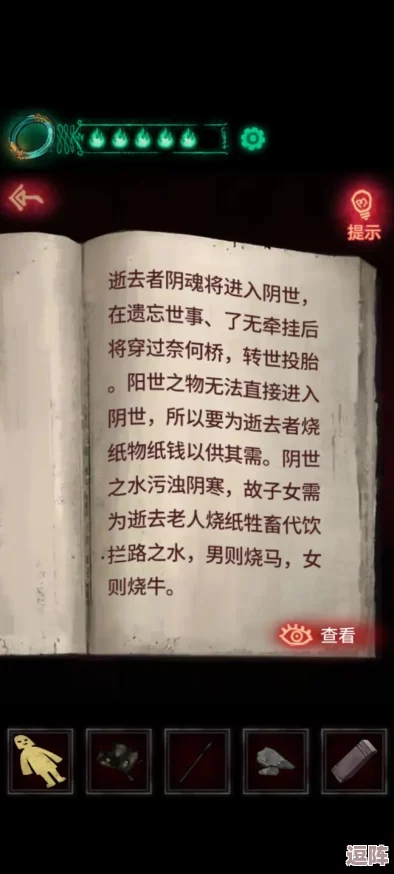 提示
逝去者阴魂将进入阴世，
在遗忘世事、了无牵挂后
将穿过奈何桥，转世投胎
。阳世之物无法直接进入
阴世，所以要为逝去者烧
纸物纸钱以供其需。阴世
之水污浊阴寒，故子女需
为逝去老人烧纸牲畜代饮
拦路之水，男则烧马，女
则烧牛。
查看
逗阵